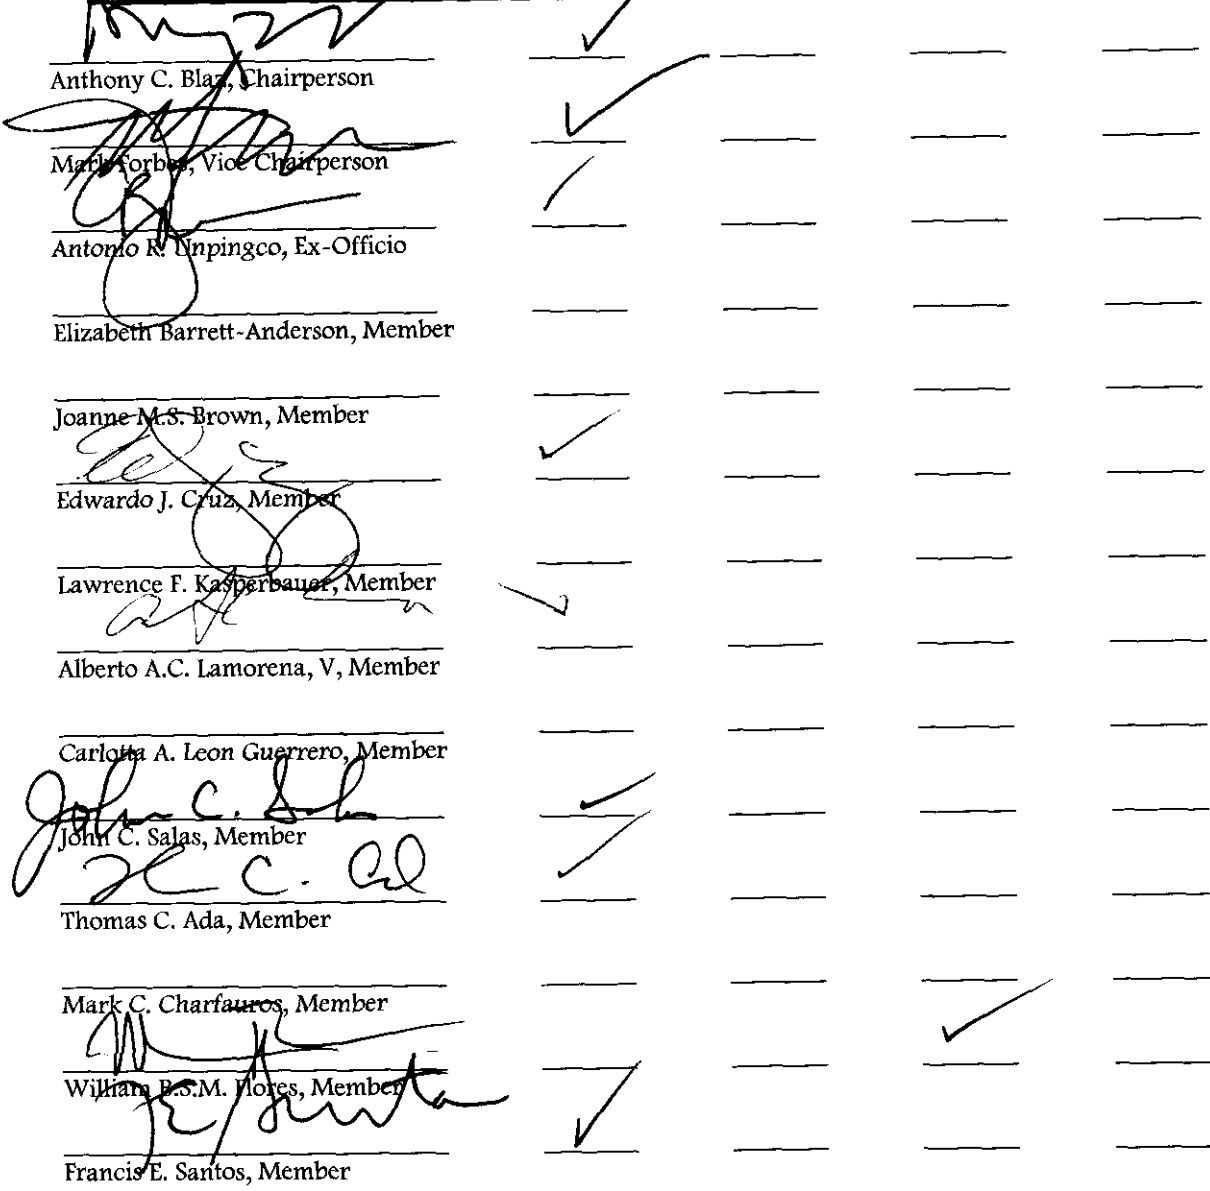 Anthony C. Blaz, Chairperson
Mark Forbes, Vice Chairperson
Antonio R. Unpingco, Ex-Officio
Elizabeth Barrett-Anderson, Member
Joanne M.S. Brown, Member
Edwardo J. Cruz, Member
Lawrence F. Kasperbauer, Member
Alberto A.C. Lamorena, V, Member
Carlotta A. Leon Guerrero, Member
John C. Sal
John C. Salas, Member
Thomas C. Ada, Member
Mark C. Charfauros, Member
William B.S.M. Flores, Member
Francis E. Santos, Member